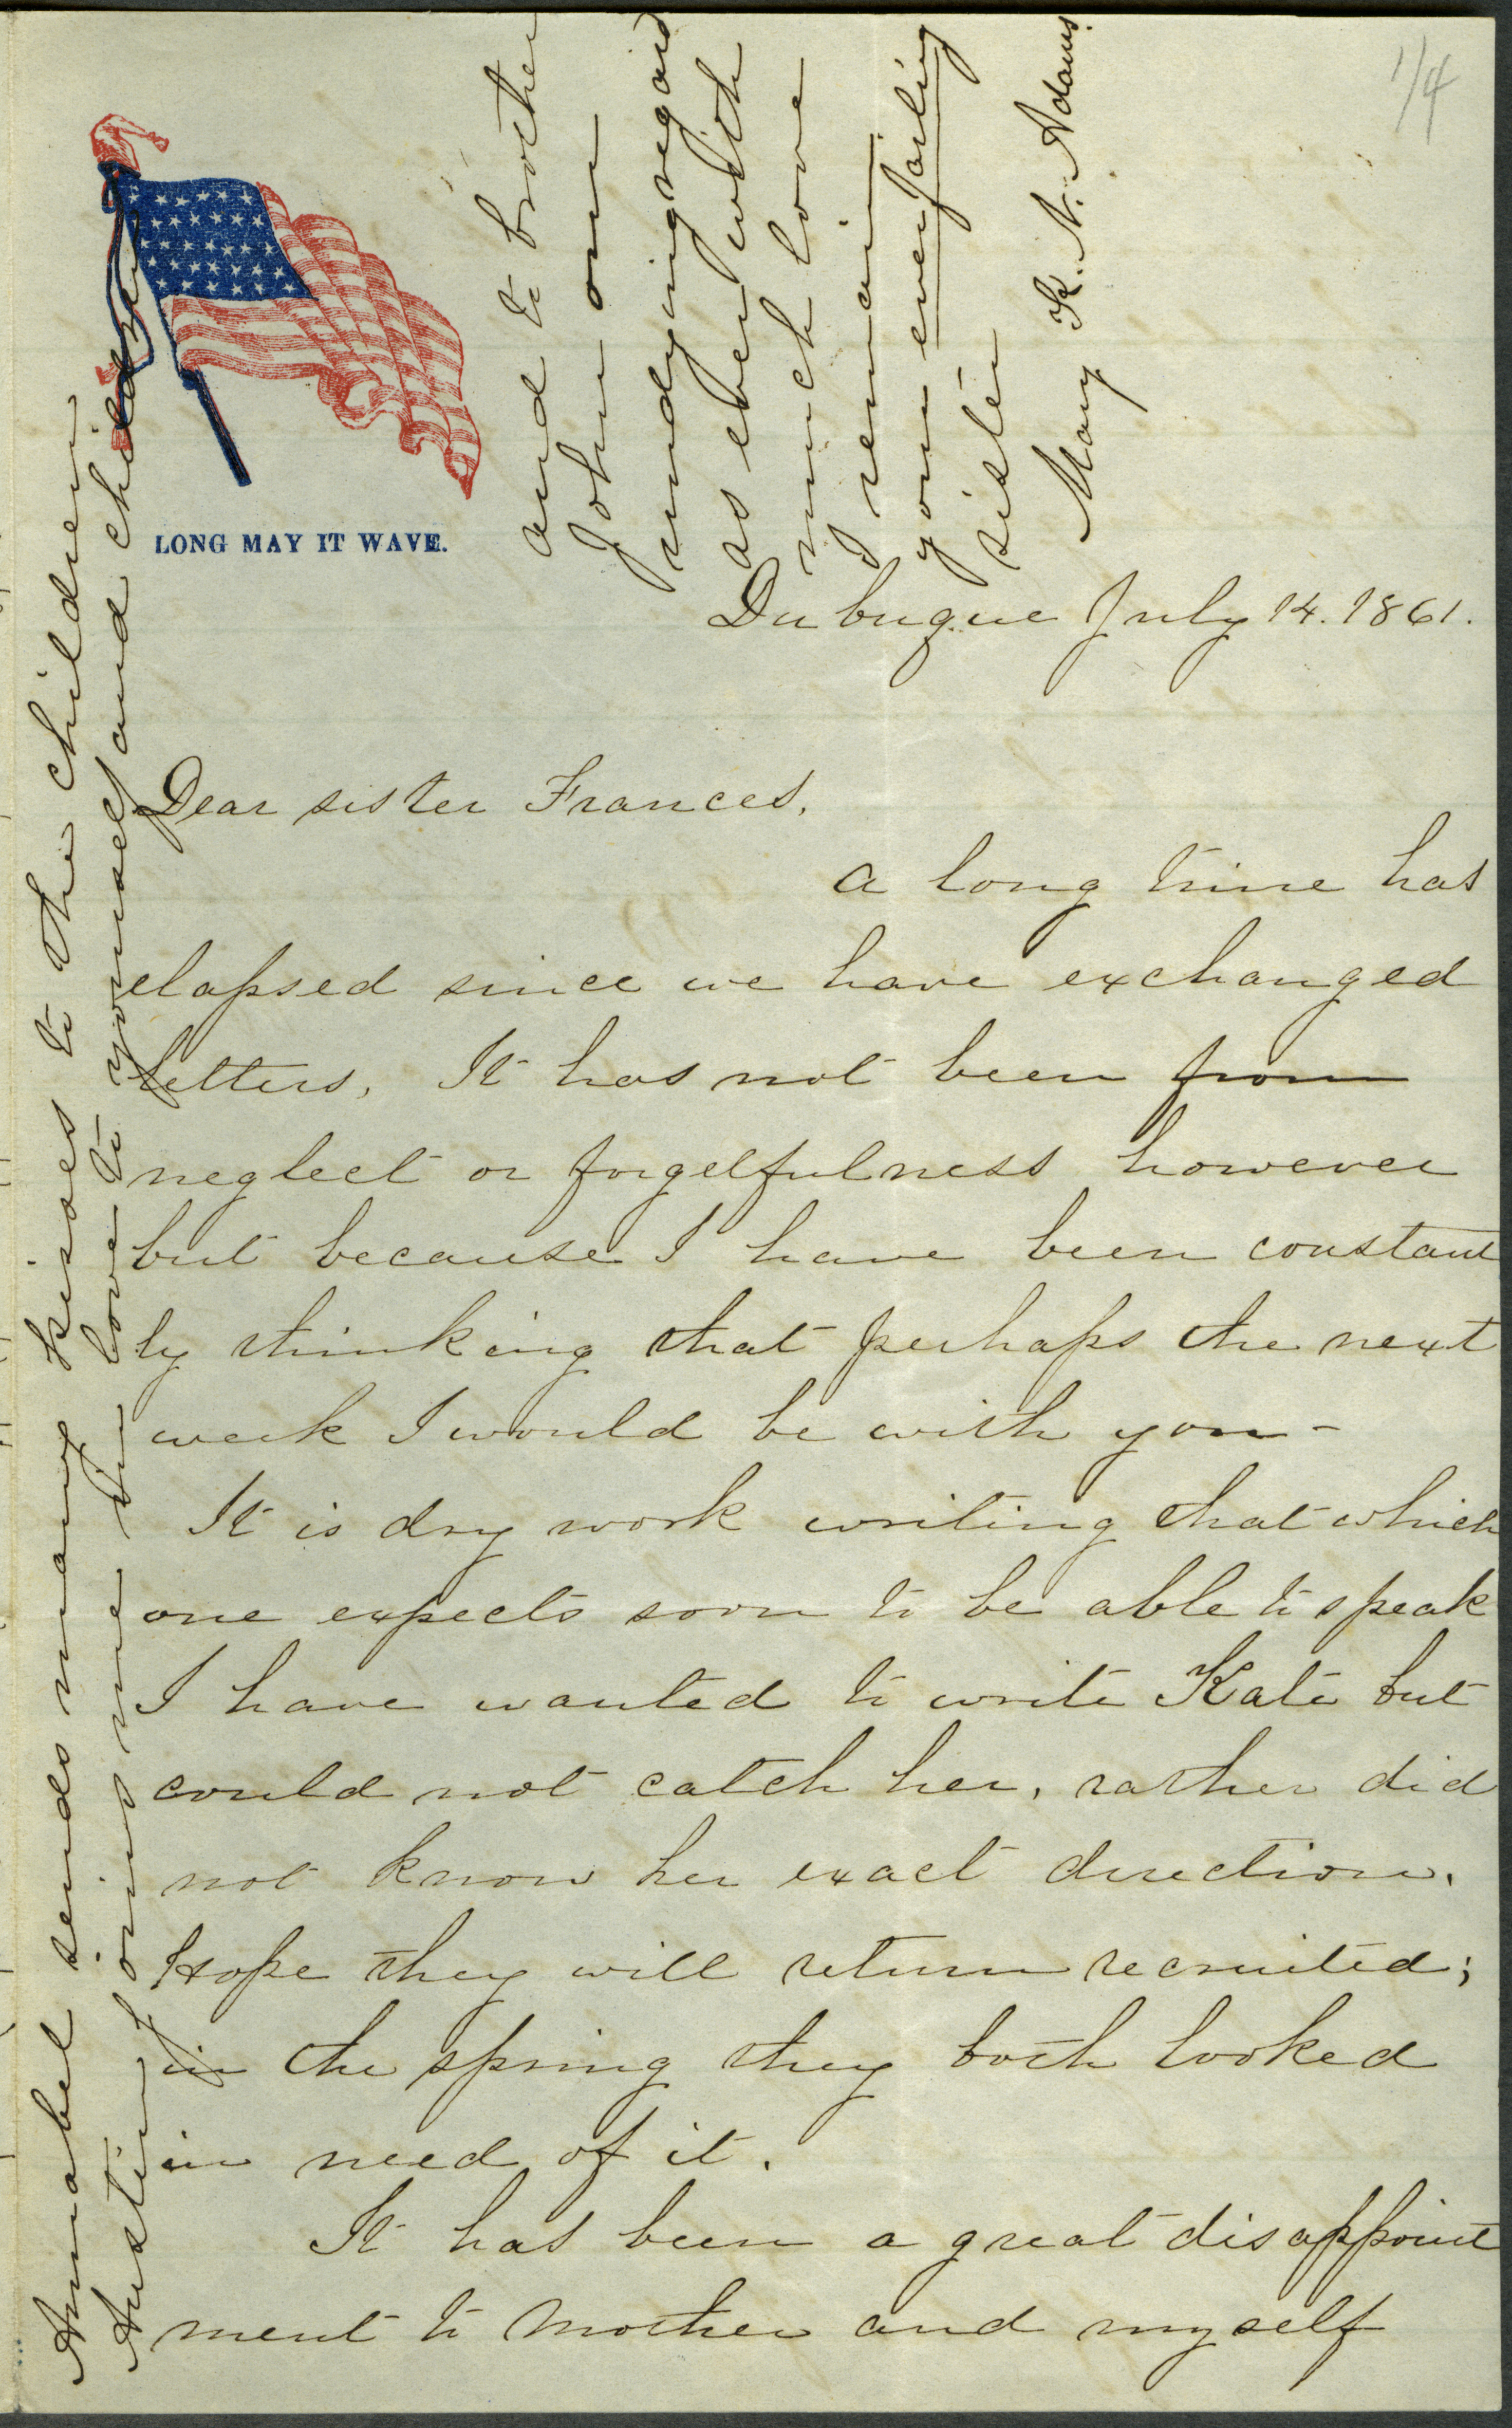 1/4
LONG MAY IT WAVE.
Dubuque July 14. 1861.
Dear sister Frances,
A long time has
elapsed since we have exchanged
letters, It has not been from
neglect or forgetfulness however
but because I have been constant
ly thinking that perhaps the next
week I would be with you-
It is dry work writing that which
one expects soon to be able to speak
I have wanted to write Kate but
could not catch her, rather did
not know her exact direction.
Hope they will return recruited;
in the spring they both looked
in need of it.
It has been a great disappoint
ment to Mother and myself
Annabel sends many kisses to the children
Austin joins me in love to yourself and children
and to brother
John our
undying regard
as ever with
much love
I remain
your everfailing
sister
Mary K. N. Adams